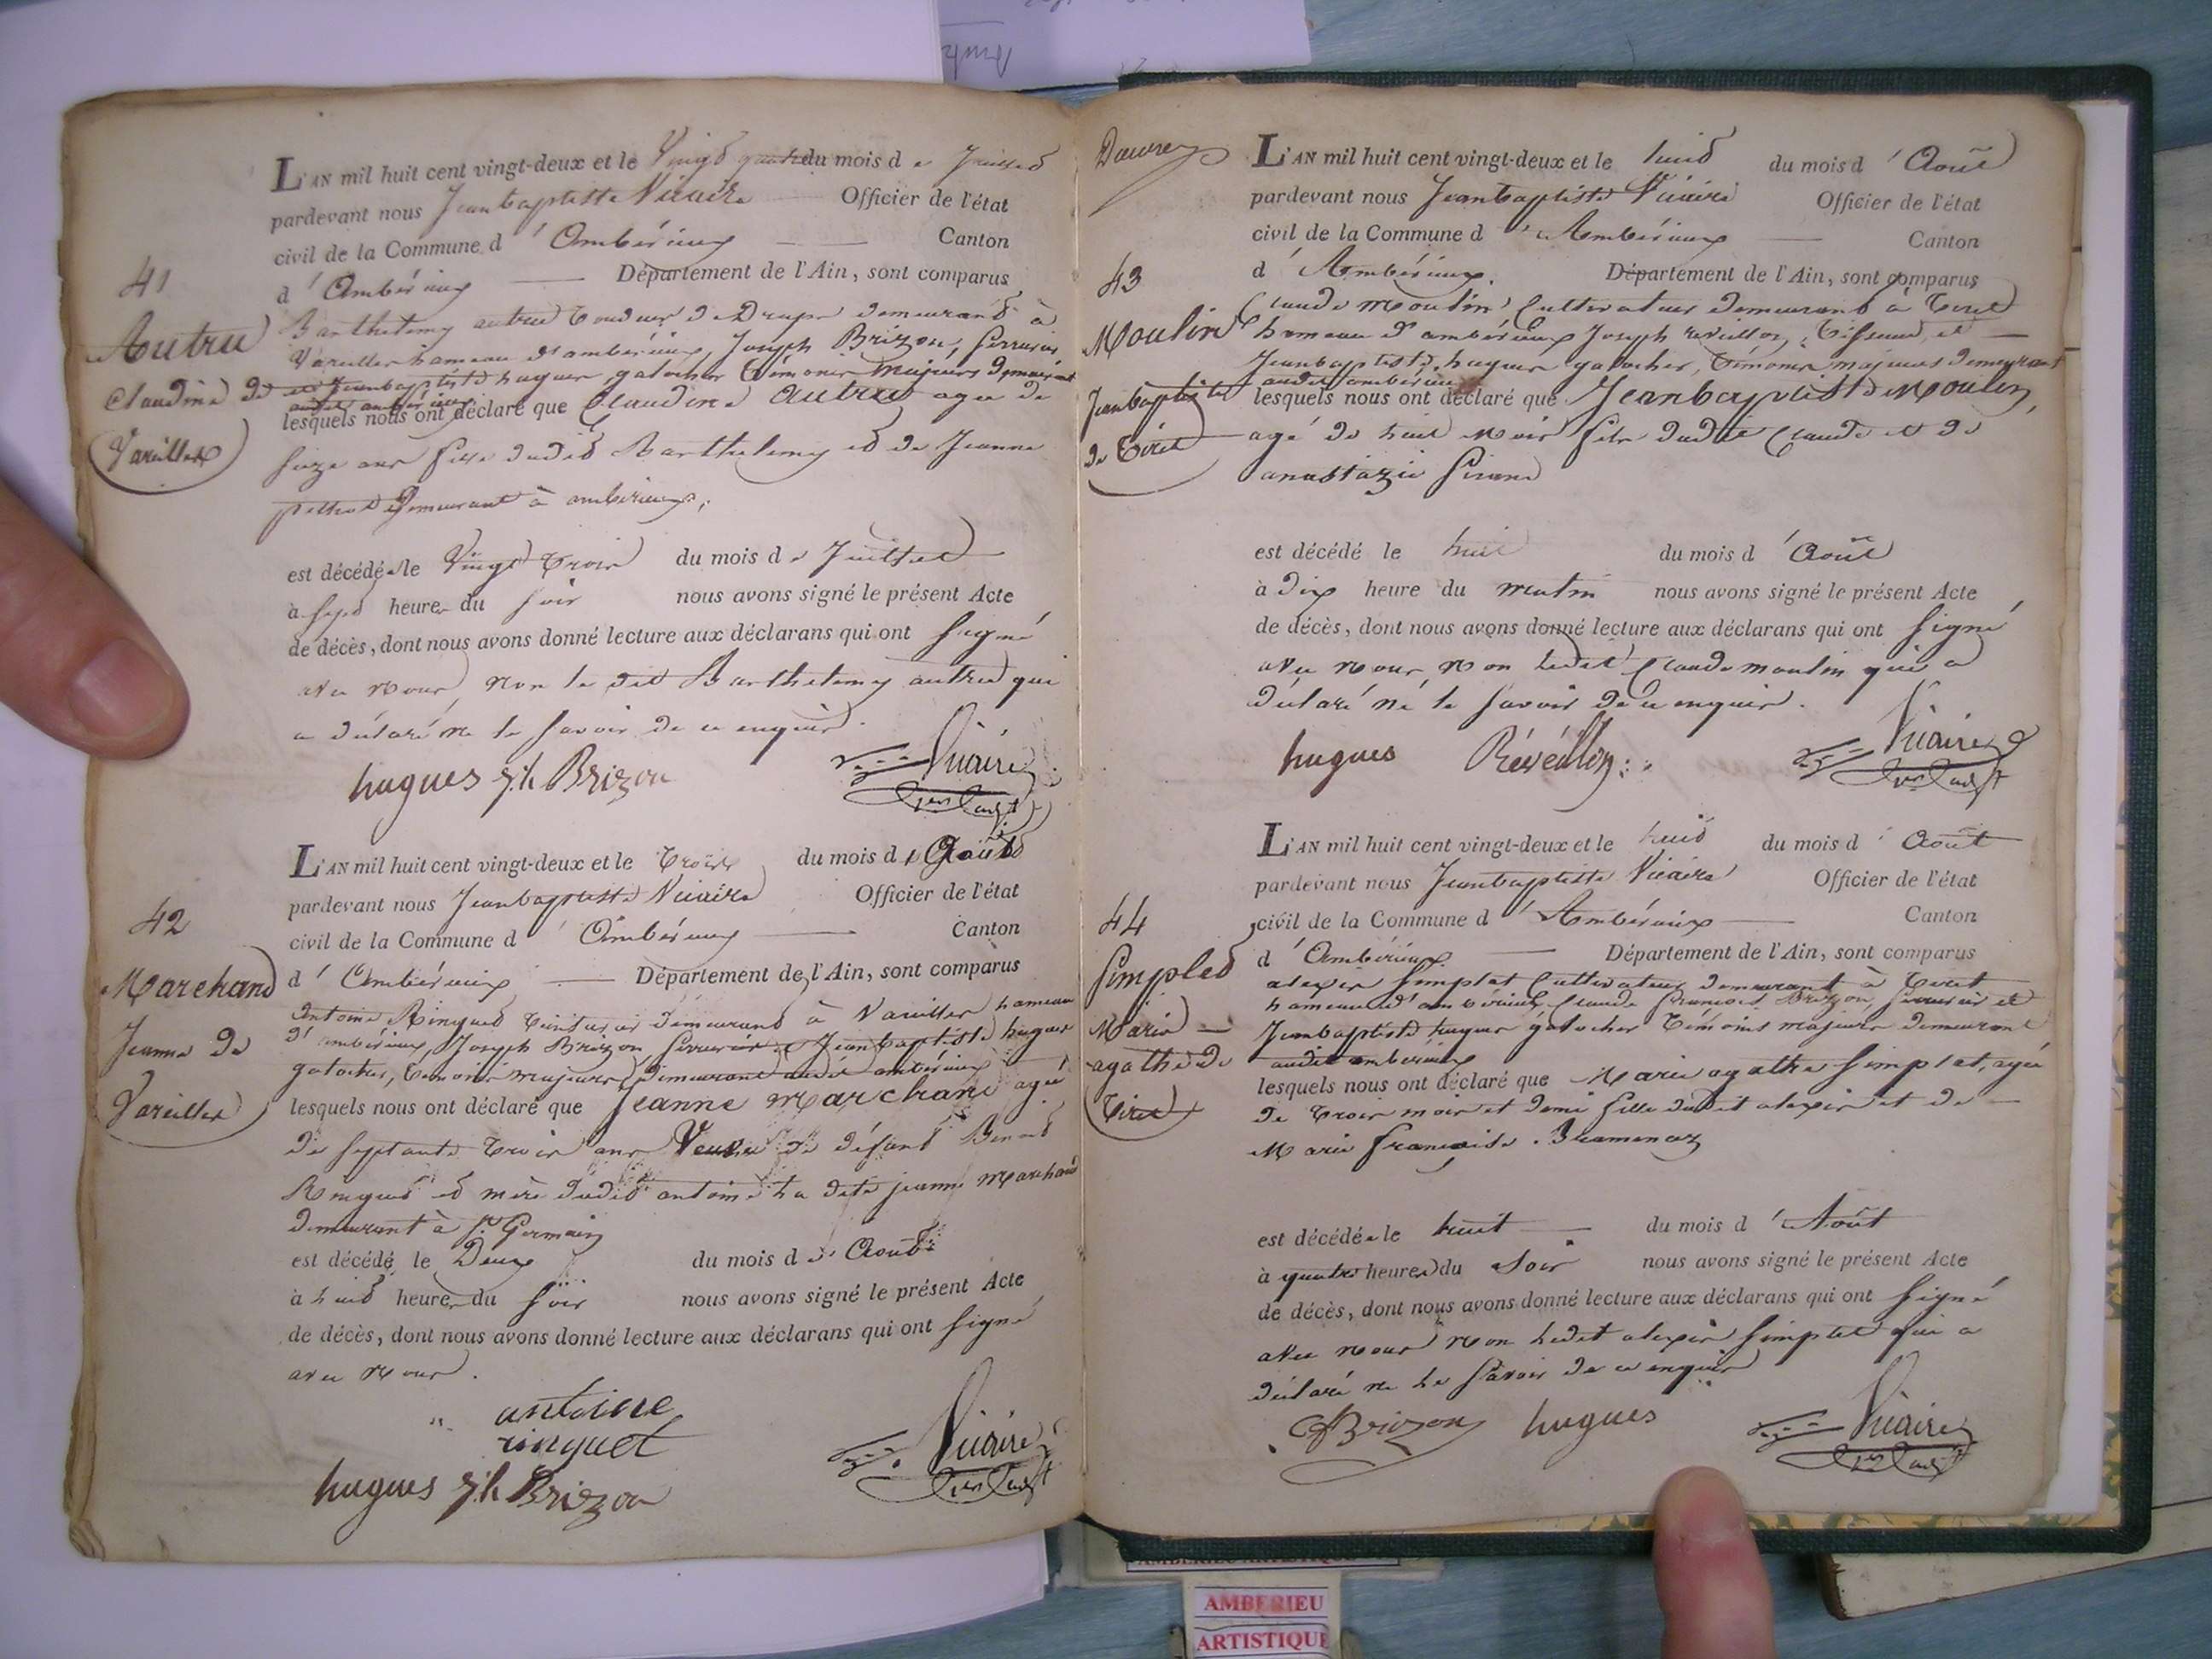 41
Autru
Claudine de
Vareilles
L'AN mil huit cent vingt-deux et le Vingt quatre du mois de Juillet
pardevant nous Jeanbaptiste Vicaire Officier de l'état
civil de la Commune d'Ambérieux Canton
d'Ambérieux Département de l'Ain, sont comparus
Barthelemy autru tondeur de Draps demeurant à
Vareilles hameau d'ambérieux, Joseph Brizon, Serrurier
et Jeanbaptiste hugues galocher témoins majeurs demeurant
audit ambérieux
lesquels nous ont déclaré que Claudine Autru agée de
seize ans fille dudit Barthelemy et de Jeanne
demeurant à ambérieux;
est décédée le Vingt trois du mois de Juillet
à sept heures du soir nous avons signé le présent Acte
de décès, dont nous avons donné lecture aux déclarans qui ont signé
avec nous, non le dit Barthelemy autru qui
a déclaré ne le savoir de ce enquis.
hugues jh Brizon Vicaire
42
Marchand
Jeanne de
Vareilles
L'AN mil huit cent vingt-deux et le trois du mois d'Août
pardevant nous Jeanbaptiste Vicaire Officier de l'état
civil de la Commune d'Ambérieux Canton
d'Ambérieux Département de l'Ain, sont comparus
Antoine Ringuet teinturier demeurant à Vareilles hameau
d'ambérieux, Joseph Brizon Serrurier et Jeanbaptiste hugues
galocher, témoins majeurs demeurant audit ambérieux
lesquels nous ont déclaré que Jeanne Marchand agée
de septante trois ans Veuve de défunt Benoit
Ringuet et mère dudit antoine la dite jeanne Marchand
demeurant à St Germain
est décédé le Deux du mois d'Août
à huit heures du soir nous avons signé le présent Acte
de décès, dont nous avons donné lecture aux déclarans qui ont signé
avec nous.
antoine
ringuet
hugues jh Brizon Vicaire
43
Moulin
Jeanbaptiste
de Tiret
L'AN mil huit cent vingt-deux et le huit du mois d'Août
pardevant nous Jeanbaptiste Vicaire Officier de l'état
civil de la Commune d'Ambérieux Canton
d'Ambérieux Département de l'Ain, sont comparus
Claude Moulin Cultivateur demeurant à Tiret
hameau d'ambérieux Joseph reveillon, Tisseur, et
Jeanbaptiste hugues galocher, témoins majeurs demeurant
audit ambérieux
lesquels nous ont déclaré que Jeanbaptiste Moulin,
agé de huit mois fils dudit Claude et de
anastazie
est décédé le huit du mois d'Août
à dix heure du matin nous avons signé le présent Acte
de décès, dont nous avons donné lecture aux déclarans qui ont signé
avec nous, non ledit Claude moulin qui a
déclaré ne le savoir de ce enquis.
hugues Réveillon Vicaire
44
Simplet
Marie
agathe de
Tiret
L'AN mil huit cent vingt-deux et le huit du mois d'Août
pardevant nous Jeanbaptiste Vicaire Officier de l'état
civil de la Commune d'Ambérieux Canton
d'Ambérieux Département de l'Ain, sont comparus
alexis Simplet Cultivateur demeurant à Tiret
hameau d'ambérieux, Claude François Brizon, serrurier et
Jeanbaptiste hugues galocher témoins majeurs demeurant
audit ambérieux
lesquels nous ont déclaré que Marie agathe Simplet, agée
de trois mois et demi fille dudit alexis et de
Marie françoise
est décédée le huit du mois d'Août
à quatre heures du soir nous avons signé le présent Acte
de décès, dont nous avons donné lecture aux déclarans qui ont signé
avec nous non ledit alexis Simplet qui a
déclaré ne le savoir de ce enquis
Brizon hugues Vicaire
AMBERIEU ARTISTIQUE
AMBERIEU
ARTISTIQUE